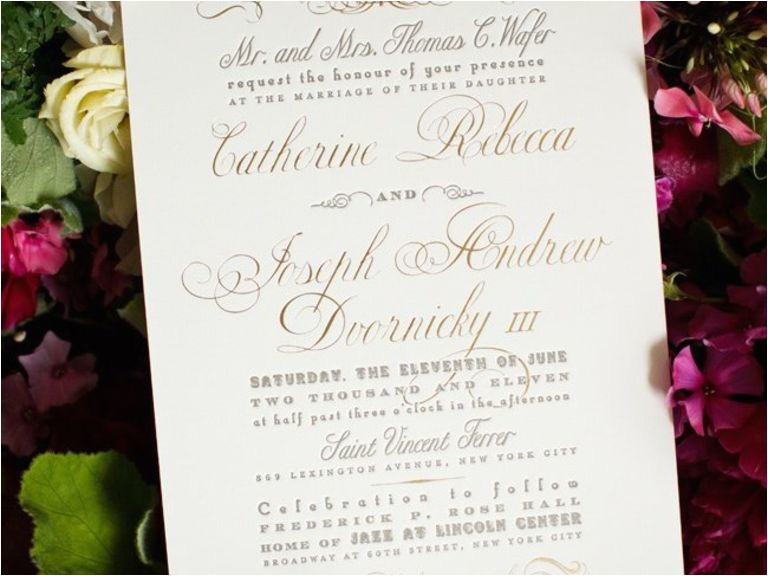 Mr. and Mrs. Thomas C. Wafer
request the honour of your presence
AT THE MARRIAGE OF THEIR DAUGHTER
Catherine Rebecca
AND
Joseph Andrew
Dvornicky III
SATURDAY, THE ELEVENTH OF JUNE
TWO THOUSAND AND ELEVEN
at half past three o'clock in the afternoon
Saint Vincent Ferrer
869 LEXINGTON AVENUE, NEW YORK CITY
Celebration to follow
FREDERICK P. ROSE HALL
HOME OF JAZZ AT LINCOLN CENTER
BROADWAY AT 60TH STREET, NEW YORK CITY